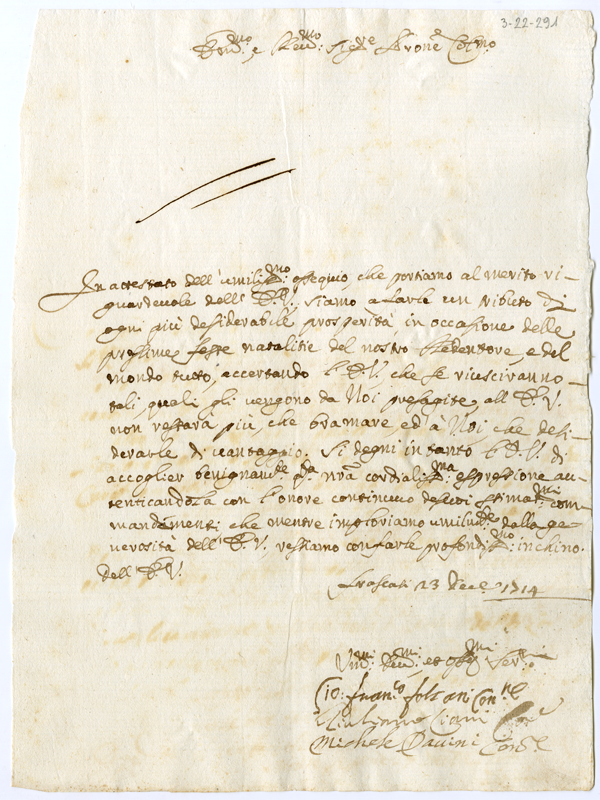 3-22-291
e Sig.e Prone Col.mo
In attestato dell' umiliss.mo ossequio, che portiamo al merito ri-
guardeuole dell' E.V. siamo a farle un tributo di
ogni più desiderabile prosperità in occasione delle
prossime feste natalitie del nostro Redentore, e del
mondo tutto, accertando l' E.V., che se riusciranno
tali, quali gli uengono da Noi presagite, all' E.V.
non restarà più, che bramare, ed à Noi, che desi-
derarle di uantaggio. Si degni in tanto l' E.V. di
accoglier benignam.te q.ta nr̃a cordialiss.ma espressione au-
tenticandola con l' onore continuo de suoi stimat.mi com-
mandamenti che mentre imploriamo umilm.te dalla ge-
nerosità dell' E.V. restiamo con farle profondiss.mo inchino.
dell' E.V.
Frascati 23 Dece. 1714
Um.mi et Ser.ri
Gio: Fran.co Con.re
Giuliano Ciani
Michele Con.re